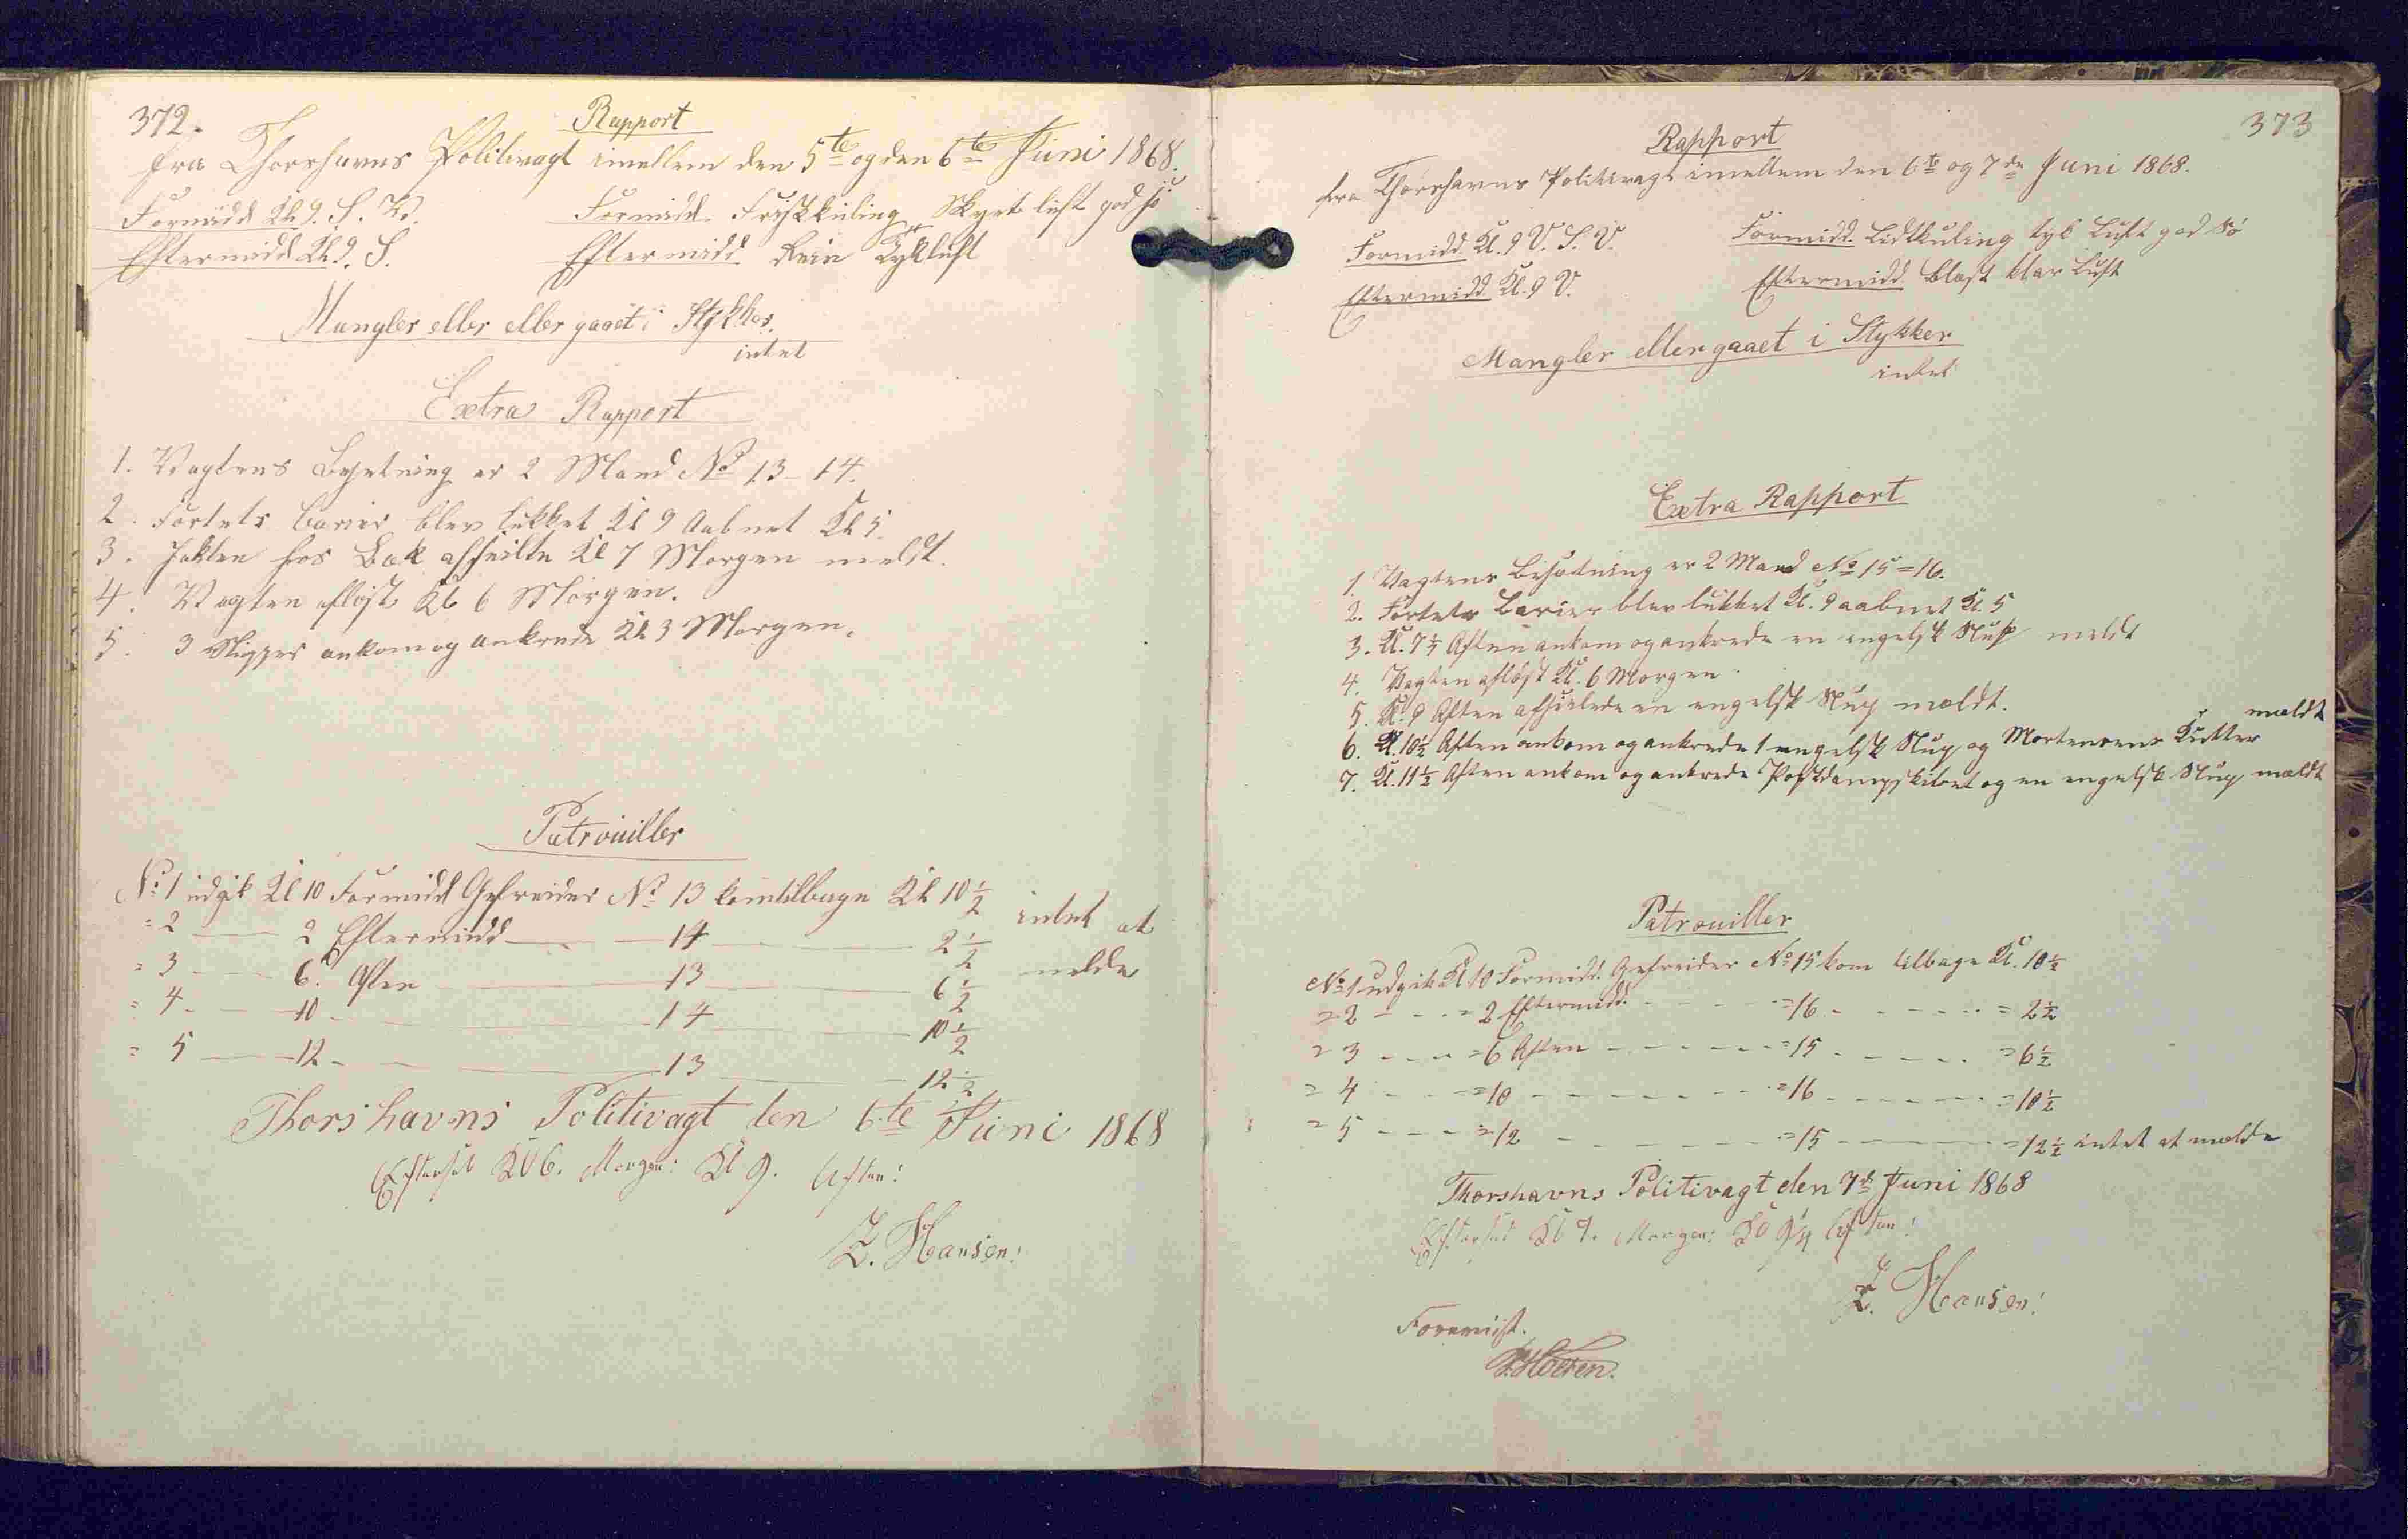 372.
Rapport
fra Thorshavns Politivagt imellem den 5te og den 6te Juni 1868.
Formidd Kl 9. S. V. Formidd. Friskkuling Skyet luft god sø
Eftermidd Kl 9. S. Eftermidd Rein Tykluft
Mangler eller eller gaaet i Stykker.
intet
Extra Rapport
1. Vagtens Besetning er 2 Mand No 13-14.
2. Fortets Barier blev lukket Kl 9 Aabnet Kl 5.
3. Jakten hos Bak afseilte Kl 7 Morgen meldt.
4. Vagten afløst Kl 6 Morgen.
5. 3 Slupper ankom og ankrede Kl 3 Morgen.
Patrouiller
No 1 udgik Kl 10 Formidd Gefreider No 13 kom tilbage Kl 10 1/2 intet at
= 2 — 2 Eftermidd — 14 — 2 1/2 melde
= 3 — 6. Aften — 13 — 6 1/2
= 4 — 10 — 14 — 10 1/2
= 5 — 12 — 13 — 12 1/2
Thorshavns Politivagt den 6te Juni 1868
Efterset Kl 6. Morgen: Kl 9. Aften!
Z. Hansen!
373
Rapport
fra Thorshavns Politivagt imellem den 6te og 7de Juni 1868.
Formidd Kl. 9 V. S. V. Formidd. Lidtkuling tyk Luft god Sø
Eftermidd Kl. 9 V. Eftermidd. Blæst klar Luft
Mangler eller gaaet i Stykker
intet
Extra Rapport
1. Vagtens Besætning er 2 Mand No 15=16.
2. Fortets Barier blev lukket Kl. 9 aabnet Kl. 5
3. Kl. 7 1/2 Aften ankom og ankrede en engelsk Slup meldt
4. Vagten afløst Kl. 6 Morgen
5. Kl. 9 Aften afseilede en engelsk Slup mældt.
6. Kl. 10 1/2 Aften ankom og ankrede 1 engelsk Slup og Mortensens Kutter mældt
7. Kl. 11 1/2 Aften ankom og ankrede Postdampskibet og en engelsk Slup mældt
Patrouiller
No 1 udgik Kl 10 Formidd. Gefreider No 15 kom tilbage Kl. 10 1/2
= 2 - - - = 2 Eftermidd. - - - =16 - - - = 2 1/2
= 3 - - - =6 Aften - - - =15 - - - =6 1/2
= 4 - - =10 - - - =16 - - - =10 1/2
= 5 - - - =12 - - - =15 - - - =12 1/2 intet at mælde
Thorshavns Politivagt den 7de Juni 1868
Efterset Kl 7. Morgen: Kl 9 1/4 Aften!
Z. Hansen!
Forevist.